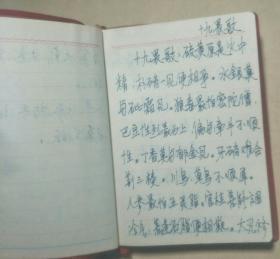 十九畏歌
十九畏歌：硫黄原是火中
精，朴硝一见便相争。水银莫
与砒霜见。狼毒最怕密陀僧。
巴豆性烈最为上，偏与牵牛不顺
情。丁香莫与郁金见。牙硝难合
荆三棱。川乌草乌不顺犀。
人参最怕五灵脂。官桂善能调
冷气，若逢石脂便相欺。大凡修